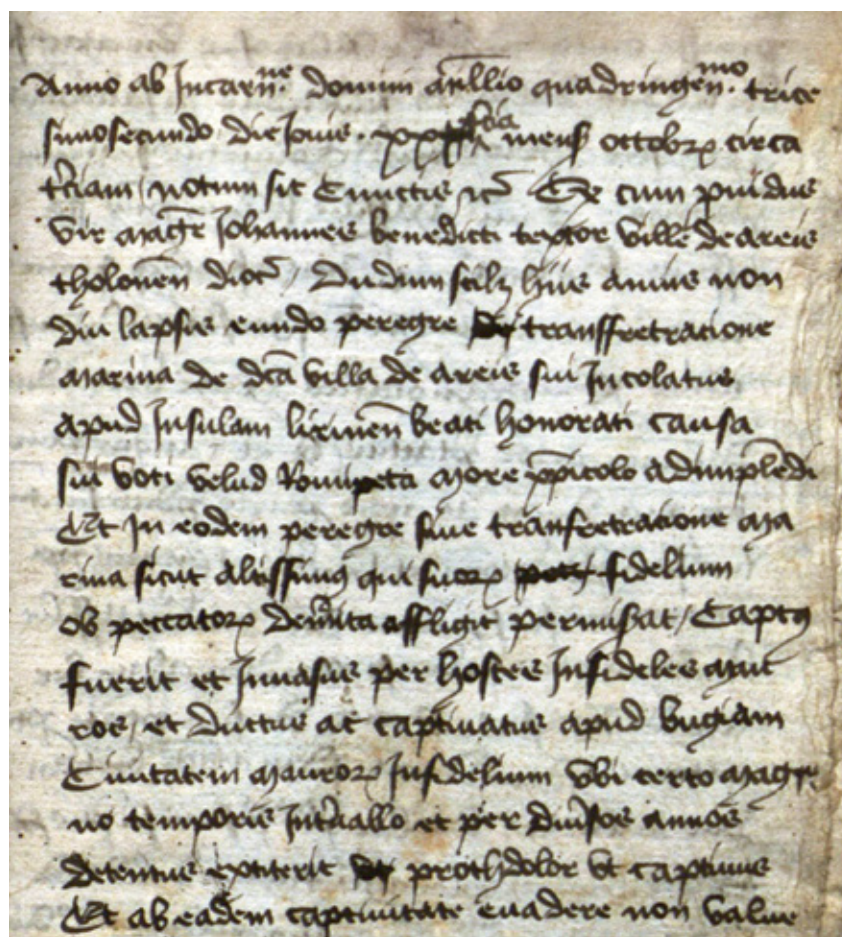 Anno ab Incarn ne domini millio quadringen mo trice
simosecundo die Iovis mens ottobr circa
terciam notum sit Cunctis etc Que cum providus
vir magr Iohannes benedicti textor ville de areis
tholonen dioc Dudum scilz huis annus non
diu lapsus eundo peregre transffretracione
marina de dca villa de areis sui Incolatus
apud Insulam lirinen beati honorati causa
sui voti velud Romipeta more adimplendi
Et In eodem peregre sive transfretracione ma
rina sicut Altissimus qui suorum fidelium
ob peccatorum demerita affligit permiserat Captus
fuerit et Invasus per hostes Infideles mau
ros et ductus ac captivatus apud bugiam
Civitatem maurorum Infidelium Vbi certo mag
no temporis Intervallo et per diversos annos
detentus extiterit prothdolor vt captivus
Et ab eadem captivitate evadere non value